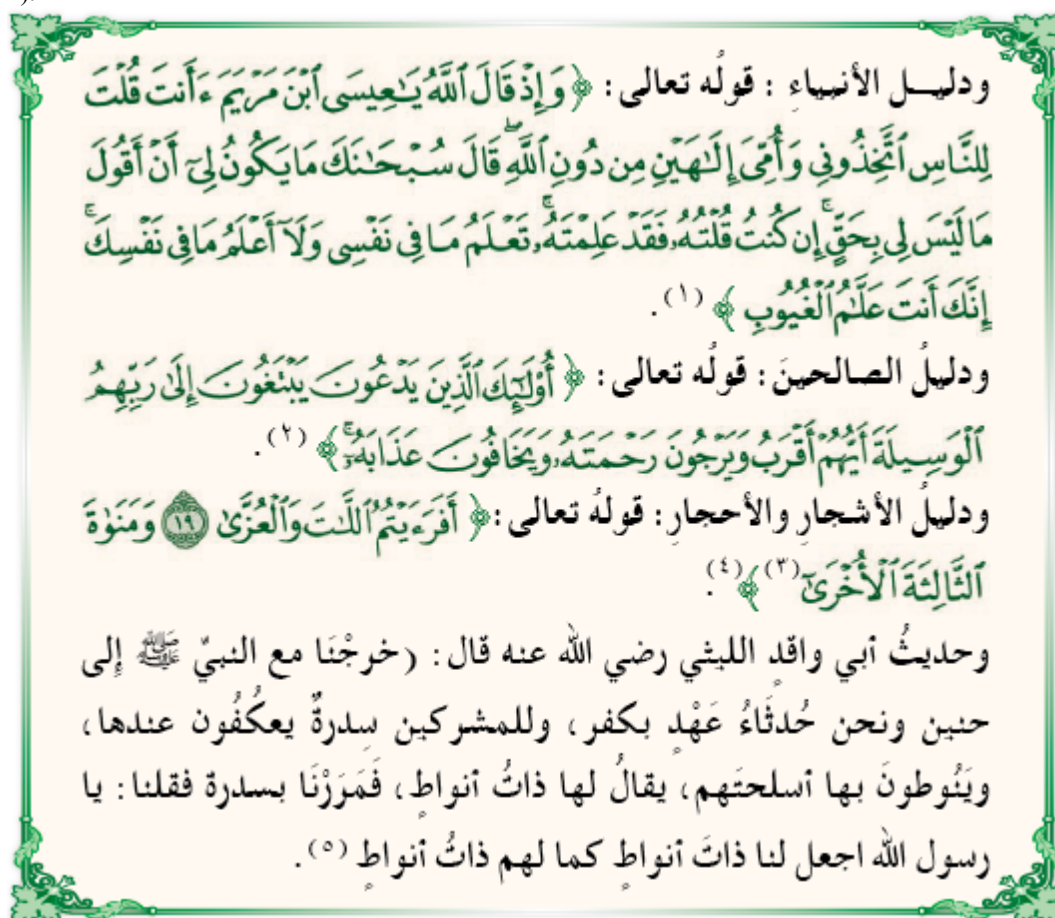 ودليــل الأنبياءِ : قولُه تعالى: ﴿ وَإِذْ قَالَ ٱللَّهُ يَـٰعِيسَى ٱبْنَ مَرْيَمَ ءَأَنتَ قُلْتَ
لِلنَّاسِ ٱتَّخِذُونِى وَأُمِّىَ إِلَـٰهَيْنِ مِن دُونِ ٱللَّهِۖ قَالَ سُبْحَـٰنَكَ مَا يَكُونُ لِىٓ أَنْ أَقُولَ
مَا لَيْسَ لِى بِحَقٍّۚ إِن كُنتُ قُلْتُهُۥ فَقَدْ عَلِمْتَهُۥۚ تَعْلَمُ مَا فِى نَفْسِى وَلَآ أَعْلَمُ مَا فِى نَفْسِكَۚ
إِنَّكَ أَنتَ عَلَّـٰمُ ٱلْغُيُوبِ ﴾ (١).
ودليلُ الصالحينَ: قولُه تعالى: ﴿ أُوْلَـٰٓئِكَ ٱلَّذِينَ يَدْعُونَ يَبْتَغُونَ إِلَىٰ رَبِّهِمُ
ٱلْوَسِيلَةَ أَيُّهُمْ أَقْرَبُ وَيَرْجُونَ رَحْمَتَهُۥ وَيَخَافُونَ عَذَابَهُۥٓۚ ﴾ (٢).
ودليلُ الأشجارِ والأحجارِ: قولهُ تعالى: ﴿ أَفَرَءَيْتُمُ ٱللَّـٰتَ وَٱلْعُزَّىٰ ١٩ وَمَنَوٰةَ
ٱلثَّالِثَةَ ٱلْأُخْرَىٰٓ (٣) ﴾ (٤).
وحديثُ أبي واقدٍ الليثي رضي الله عنه قال: (خرجْنَا مع النبيّ ﷺ إِلى
حنين ونحن حُدثَاءُ عَهْدٍ بكفر، وللمشركين سِدرةٌ يعكُفُون عندها،
ويَنُوطونَ بها أسلحتَهم، يقالُ لها ذاتُ أنواطٍ، فَمَرَرْنَا بسدرة فقلنا: يا
رسول الله اجعل لنا ذاتَ أنواطٍ كما لهم ذاتُ أنواطٍ (٥).